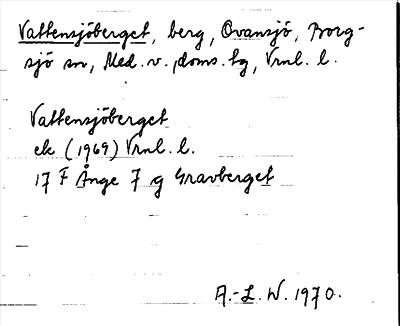 Vattensjöberget, berg, Ovansjö, Borg-
sjö sn, Med. v. doms. tg, Vrnl. l.
Vattensjöberget
ek (1969) Vrnl. l.
17 F Ånge 7 g Gravberget
A.-L. W. 1970.